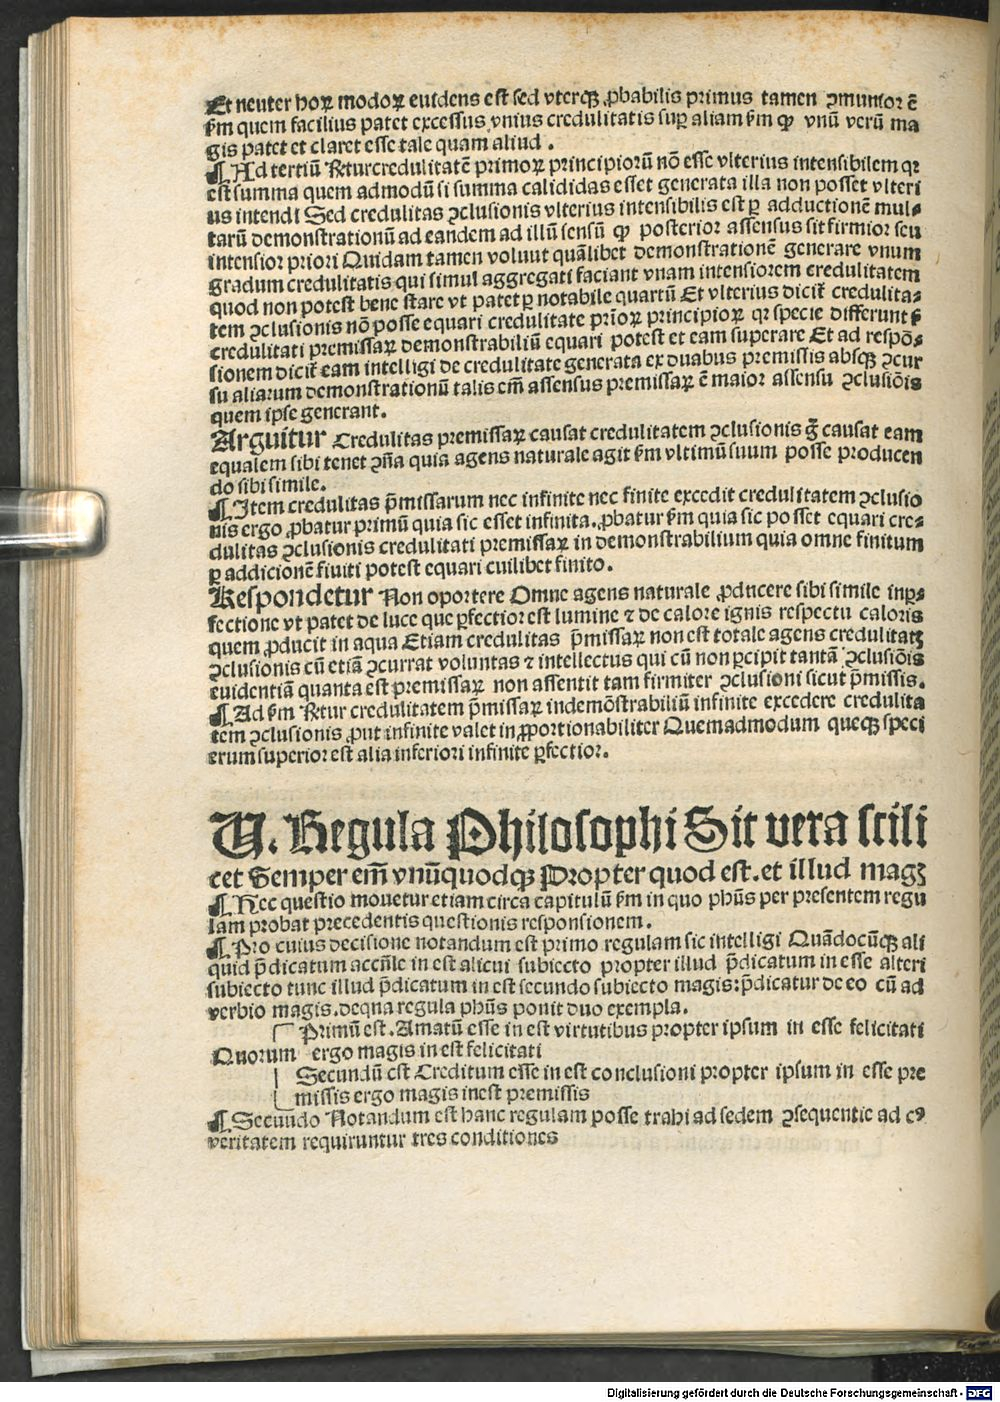 Et neuter hoꝝ modoꝝ euidens est sed vterqꝫ ꝓbabilis primus tamen ꝯmunior ē
ẜm quem facilius patet excessus vnius credulitatis suꝑ aliam ẜm ꝙ vnū verū ma
gis patet et claret esse tale quam aliud .
¶ Ad tertiū Rꝛ̄tur credulitatē primoꝝ principiorū nō esse vlterius intensibilem qꝛ
est summa quem admodū si summa calididas esset generata illa non posset vlteri
us intendi Sed credulitas ꝯclusionis vlterius intensibilis est ꝑ adductionē mul⸗
tarū demonstrationū ad eandem ad illū sensū ꝙ posterior assensus sit firmior seu
intensior priori Quidam tamen voluut quālibet demonstrationē generare vnum
gradum credulitatis qui simul aggregati faciant vnam intensiorem credulitatem
quod non potest bene stare vt patet ꝑ notabile quartū Et vlterius dicit̄ credulita⸗
tem ꝯclusionis nō posse equari credulitate prīoꝝ principioꝝ qꝛ specie differunt ẜ
credulitati premissaꝝ demonstrabiliū equari potest et eam superare Et ad respō⸗
sionem dicit̄ eam intelligi de credulitate generata ex duabus premissis absqꝫ ꝯcur
su aliarum demonstrationū talis em̄ assensus premissaꝝ ē maior assensu ꝯclusiōis
quem ipse generant.
Arguitur Credulitas premissaꝝ causat credulitatem ꝯclusionis g̃ causat eam
equalem sibi tenet ꝯn̄a quia agens naturale agit ẜm vltimū suum posse producen
do sibi simile.
¶ Item credulitas p̄missarum nec infinite nec finite excedit credulitatem ꝯclusio
nis ergo ꝓbatur primū quia sic esset infinita.ꝓbatur ẜm quia sic posset equari cre⸗
dulitas ꝯclusionis credulitati premissaꝝ in demonstrabilium quia omne finitum
ꝑ addicionē finiti potest equari cuilibet finito.
Respondetur Non oportere Omne agens naturale ꝓducere sibi simile inꝑ⸗
fectione vt patet de luce que ꝑfectior est lumine ⁊ de calore ignis respectu caloris
quem ꝓducit in aqua Etiam credulitas p̄missaꝝ non est totale agens credulitatꝫ
ꝯclusionis cū etiā ꝯcurrat voluntas ⁊ intellectus qui cū non ꝑcipit tantā ꝯclusiōis
euidentiā quanta est premissaꝝ non assentit tam firmiter ꝯclusioni sicut p̄missis.
¶ Ad ẜm Rꝛ̄tur credulitatem p̄missaꝝ indemōstrabiliū infinite excedere credulita
tem ꝯclusionis ꝓut infinite valet inꝓportionabiliter Quemadmodum queqꝫ speci
erum superior est alia inferiori infinite ꝑfectior.
V. Regula Philosophi Sit vera scili
cet Semper em̄ vnūquodqꝫ Propter quod est.et illud magꝫ
¶ Hec questio mouetur etiam circa capitulū ẜm in quo phūs per presentem regu
lam probat precedentis questionis responsionem.
¶ Pro cuius decisione notandum est primo regulam sic intelligi Quādocūqꝫ ali
quid p̄dicatum accn̄le in est alicui subiecto propter illud p̄dicatum in esse alteri
subiecto tunc illud p̄dicatum in est secundo subiecto magis:p̄dicatur de eo cū ad
verbio magis.de qna regula phūs ponit duo exempla.
Primū est. Amatū esse in est virtutibus propter ipsum in esse felicitati
Quorum ergo magis in est felicitati
Secundū est Creditum esse in est conclusioni propter ipsum in esse pre
missis ergo magis inest premissis
¶ Secundo Notandum est hanc regulam posse trahi ad sedem ꝯsequentie ad cꝰ
veritatem requiruntur tres conditiones
Digitalisierung gefördert durch die Deutsche Forschungsgemeinschaft - DFG